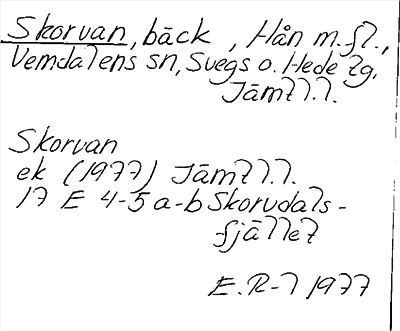 Skorvan, bäck , Hån m.fl.,
Vemdalens sn, Svegs o. Hede tg,
Jämtl.l.
Skorvan
ek (1977) Jämtl.l.
17 E 4-5 a-b Skorvdals-
fjället
E.R-l 1977